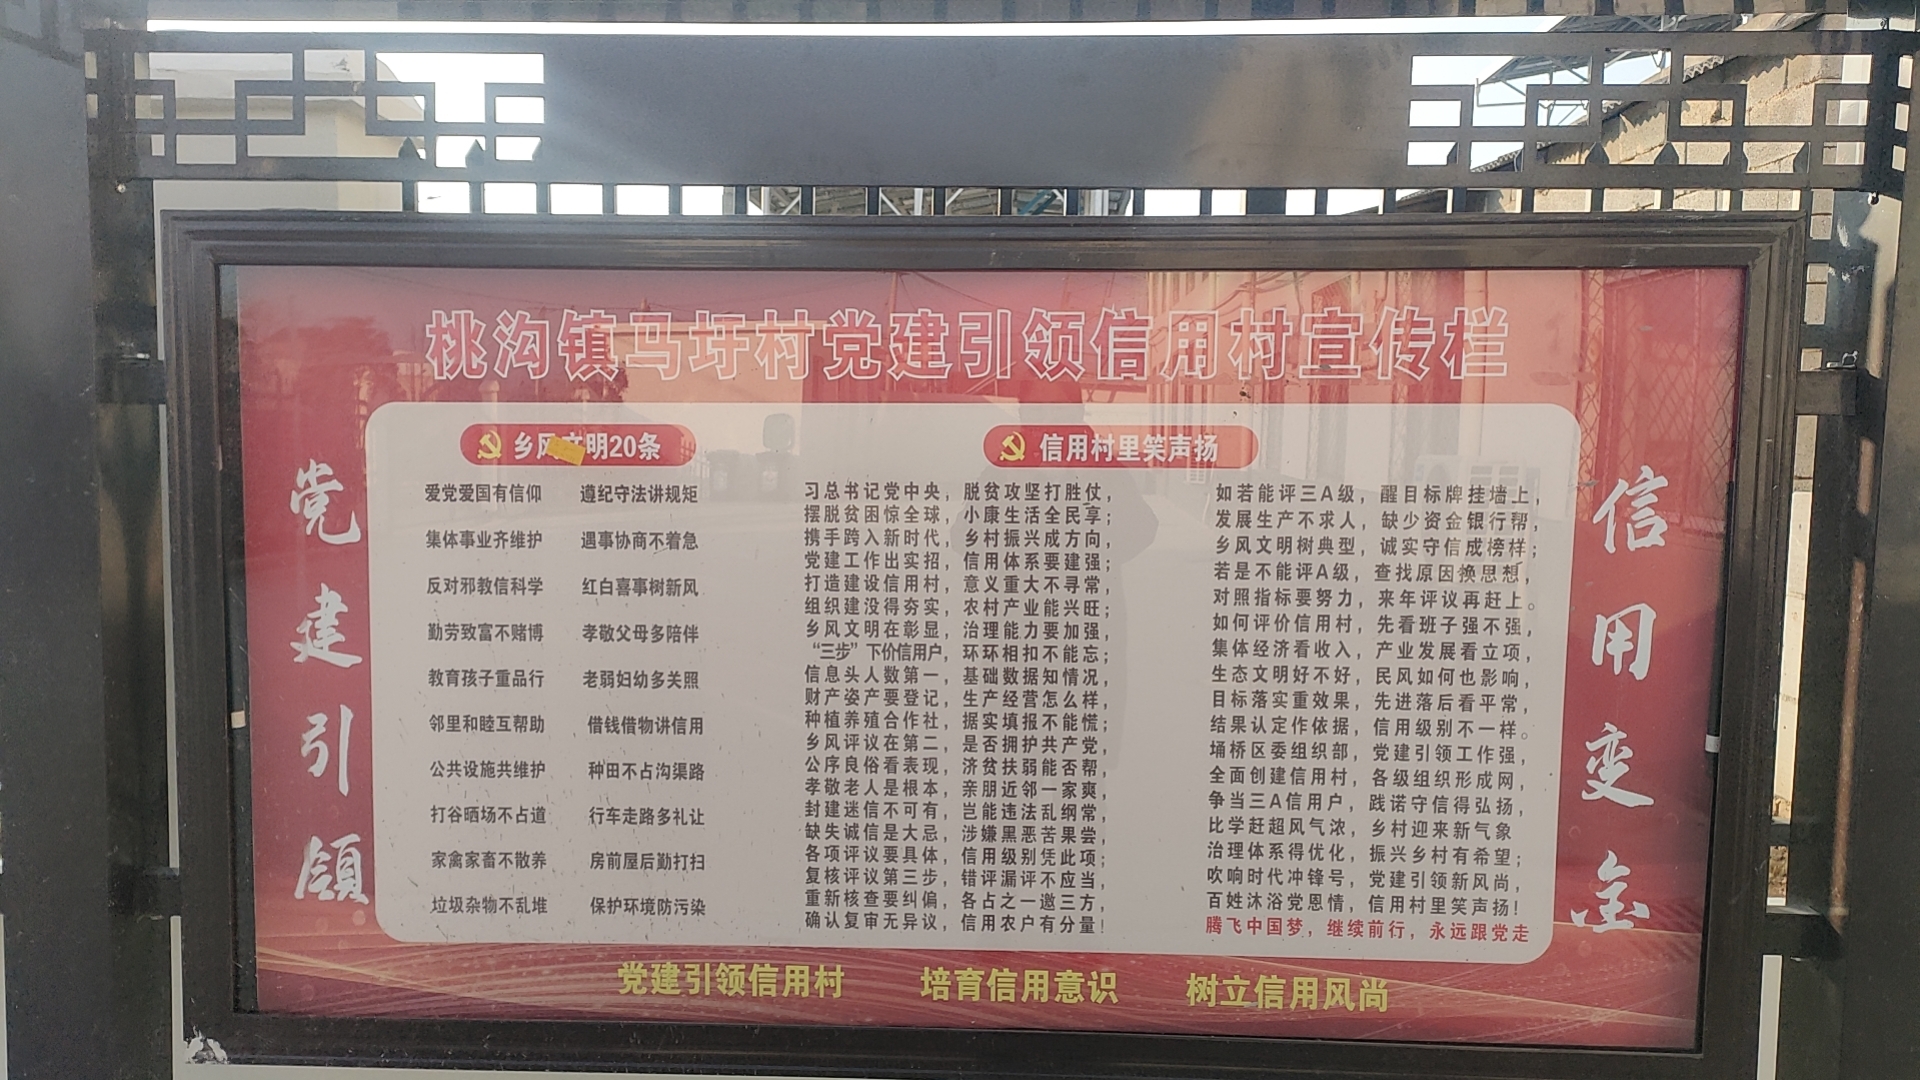 桃沟镇马圩村党建引领信用村宣传栏
党建引领
乡风文明20条
爱党爱国有信仰 遵纪守法讲规矩
集体事业齐维护 遇事协商不着急
反对邪教信科学 红白喜事树新风
勤劳致富不赌博 孝敬父母多陪伴
教育孩子重品行 老弱妇幼多关照
邻里和睦互帮助 借钱借物讲信用
公共设施共维护 种田不占沟渠路
打谷晒场不占道 行车走路多礼让
家禽家畜不散养 房前屋后勤打扫
垃圾杂物不乱堆 保护环境防污染
信用村里笑声扬
习总书记党中央，脱贫攻坚打胜仗，
摆脱贫困惊全球，小康生活全民享；
携手跨入新时代，乡村振兴成方向，
党建工作出实招，信用体系要建强；
打造建设信用村，意义重大不寻常，
组织建没得夯实，农村产业能兴旺；
乡风文明在彰显，治理能力要加强，
“三步”下价信用户，环环相扣不能忘；
信息头人数第一，基础数据知情况，
财产姿产要登记，生产经营怎么样，
种植养殖合作社，据实填报不能慌；
乡风评议在第二，是否拥护共产党，
公序良俗看表现，济贫扶弱能否帮，
孝敬老人是根本，亲朋近邻一家爽，
封建迷信不可有，岂能违法乱纲常，
缺失诚信是大忌，涉嫌黑恶苦果尝，
各项评议要具体，信用级别凭此项；
复核评议第三步，错评漏评不应当，
重新核查要纠偏，各占之一邀三方，
确认复审无异议，信用农户有分量！
如若能评三A级，醒目标牌挂墙上，
发展生产不求人，缺少资金银行帮，
乡风文明树典型，诚实守信成榜样；
若是不能评A级，查找原因换思想，
对照指标要努力，来年评议再赶上。
如何评价信用村，先看班子强不强，
集体经济看收入，产业发展看立项，
生态文明好不好，民风如何也影响，
目标落实重效果，先进落后看平常，
结果认定作依据，信用级别不一样。
埇桥区委组织部，党建引领工作强，
全面创建信用村，各级组织形成网，
争当三A信用户，践诺守信得弘扬，
比学赶超风气浓，乡村迎来新气象
治理体系得优化，振兴乡村有希望；
吹响时代冲锋号，党建引领新风尚，
百姓沐浴党恩情，信用村里笑声扬！
腾飞中国梦，继续前行，永远跟党走
信用变金
党建引领信用村 培育信用意识 树立信用风尚